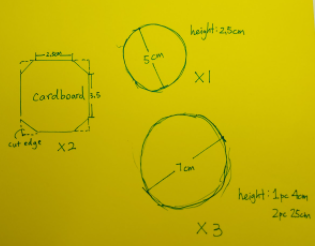 height: 2.5cm
5cm
X1
cardboard
3.5
cut edge
X2
7cm
height: 1pc 4cm
2pc 25cm
X3